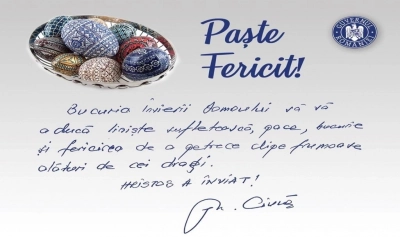 Paște
Fericit!
GUVERNUL
ROMÂNIEI
Bucuria Învierii Domnului să vă
aducă liniște sufletească, pace, bucurie
și fericirea de a petrece clipe frumoase
alături de cei dragi.
HRISTOS A ÎNVIAT!